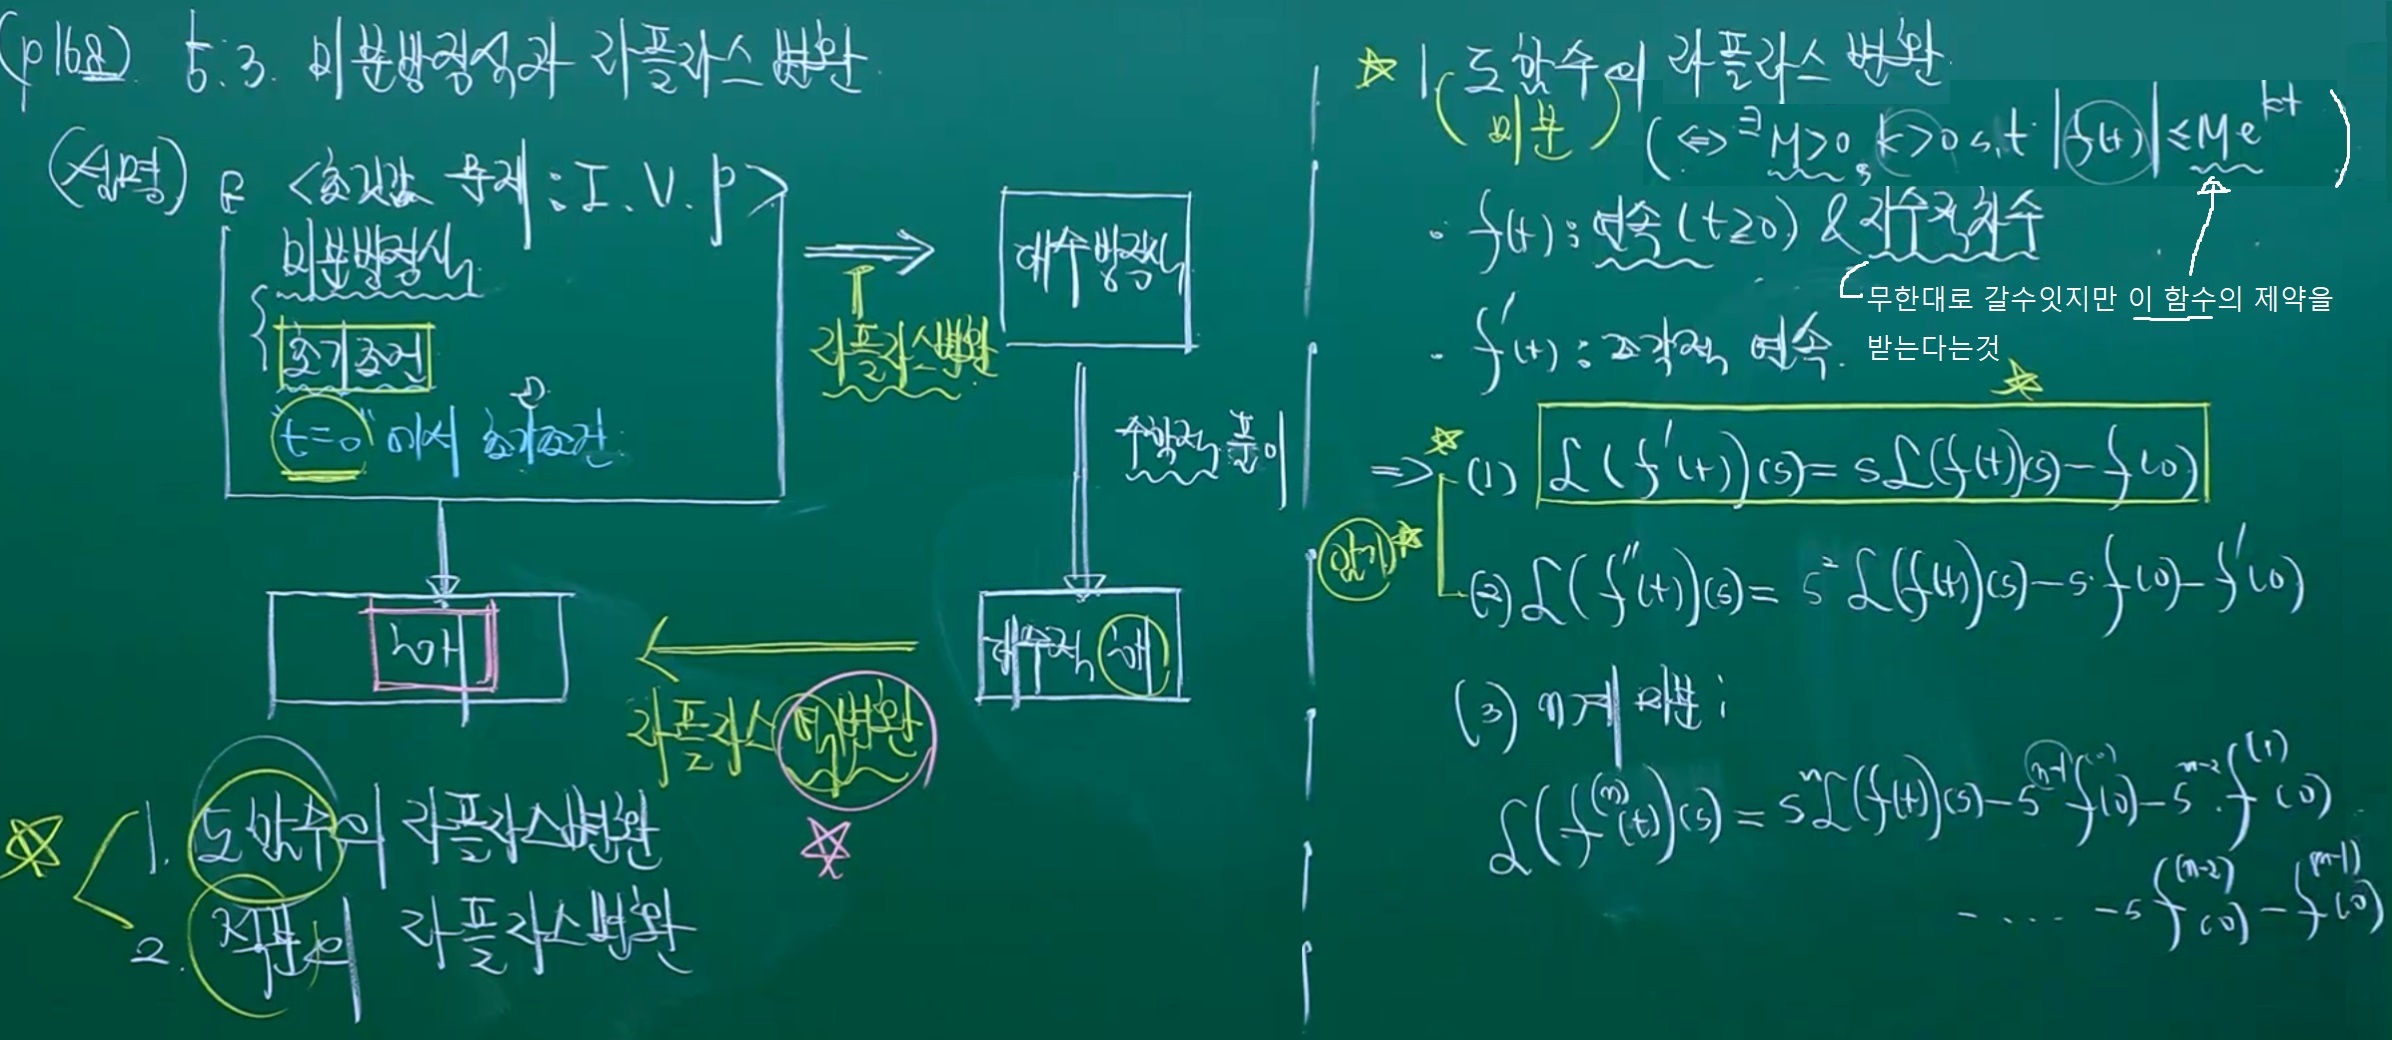 (p168) 5.3. 미분방정식과 라플라스 변환
(설명) <초깃값 문제 : I.V.P>
미분방정식
초기조건
"t=0"에서 초기조건
⇒
라플라스변환
대수방정식
수학적 풀이
대수적 해
라플라스 역변환
해
☆ 1. 도함수의 라플라스변환
2. 적분의 라플라스변환
☆ 1. 도함수의 라플라스 변환
(미분)
(⇔ ∃M>0, k>0 s.t |f(t)| ≤ Me^{kt})
· f(t) : 연속 (t≥0) & 지수적차수
무한대로 갈수잇지만 이 함수의 제약을
받는다는것
· f'(t) : 조각적 연속.
⇒ (1) ℒ(f'(t))(s) = sℒ(f(t)(s) - f(0)
암기
(2) ℒ(f''(t))(s) = s²ℒ(f(t))(s) - s·f(0) - f'(0)
(3) n계 미분 ;
ℒ(f^{(n)}(t))(s) = s^nℒ(f(t))(s) - s^{n-1}f^{(0)}(0) - s^{n-2}·f^{(1)}(0)
- .... - s f^{(n-2)}(0) - f^{(n-1)}(0)